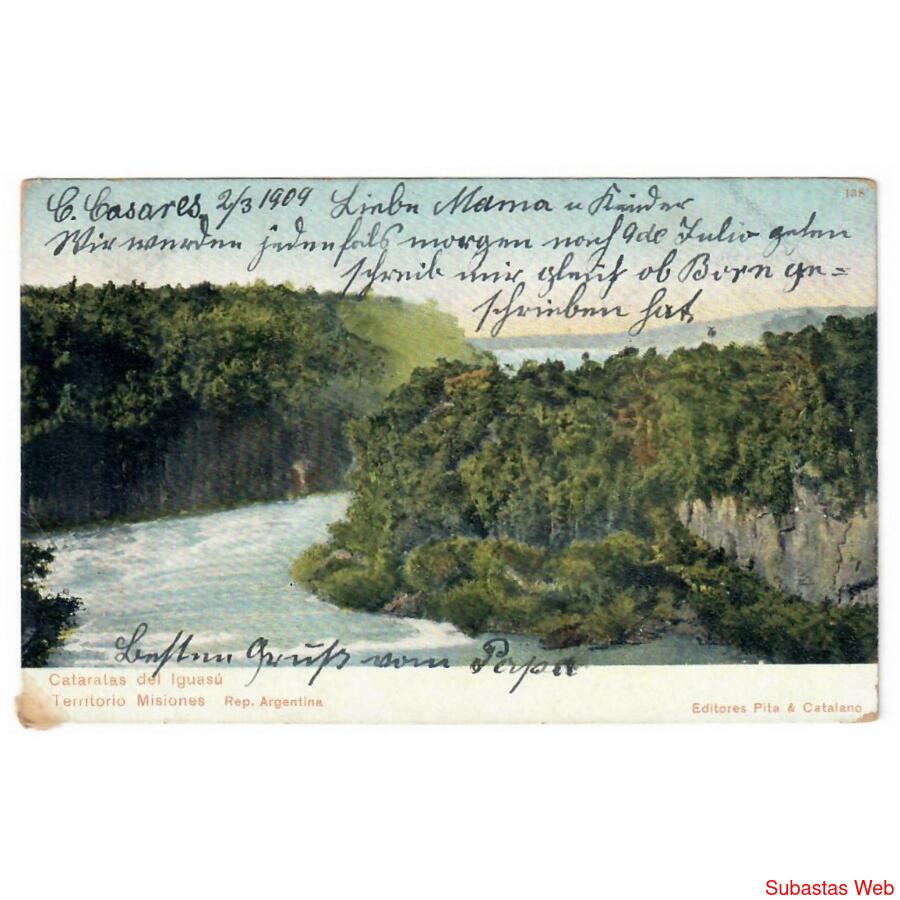 C. Casares, 2/3 1909 Liebe Mama u Kinder
138
Wir werden jedenfals morgen nach 9 de Julio gehen
schreib mir gleich ob Born ge=
schrieben hat
Besten Gruß vom Papa
Cataratas del Iguasú
Territorio Misiones Rep. Argentina
Editores Pita & Catalano
Subastas Web